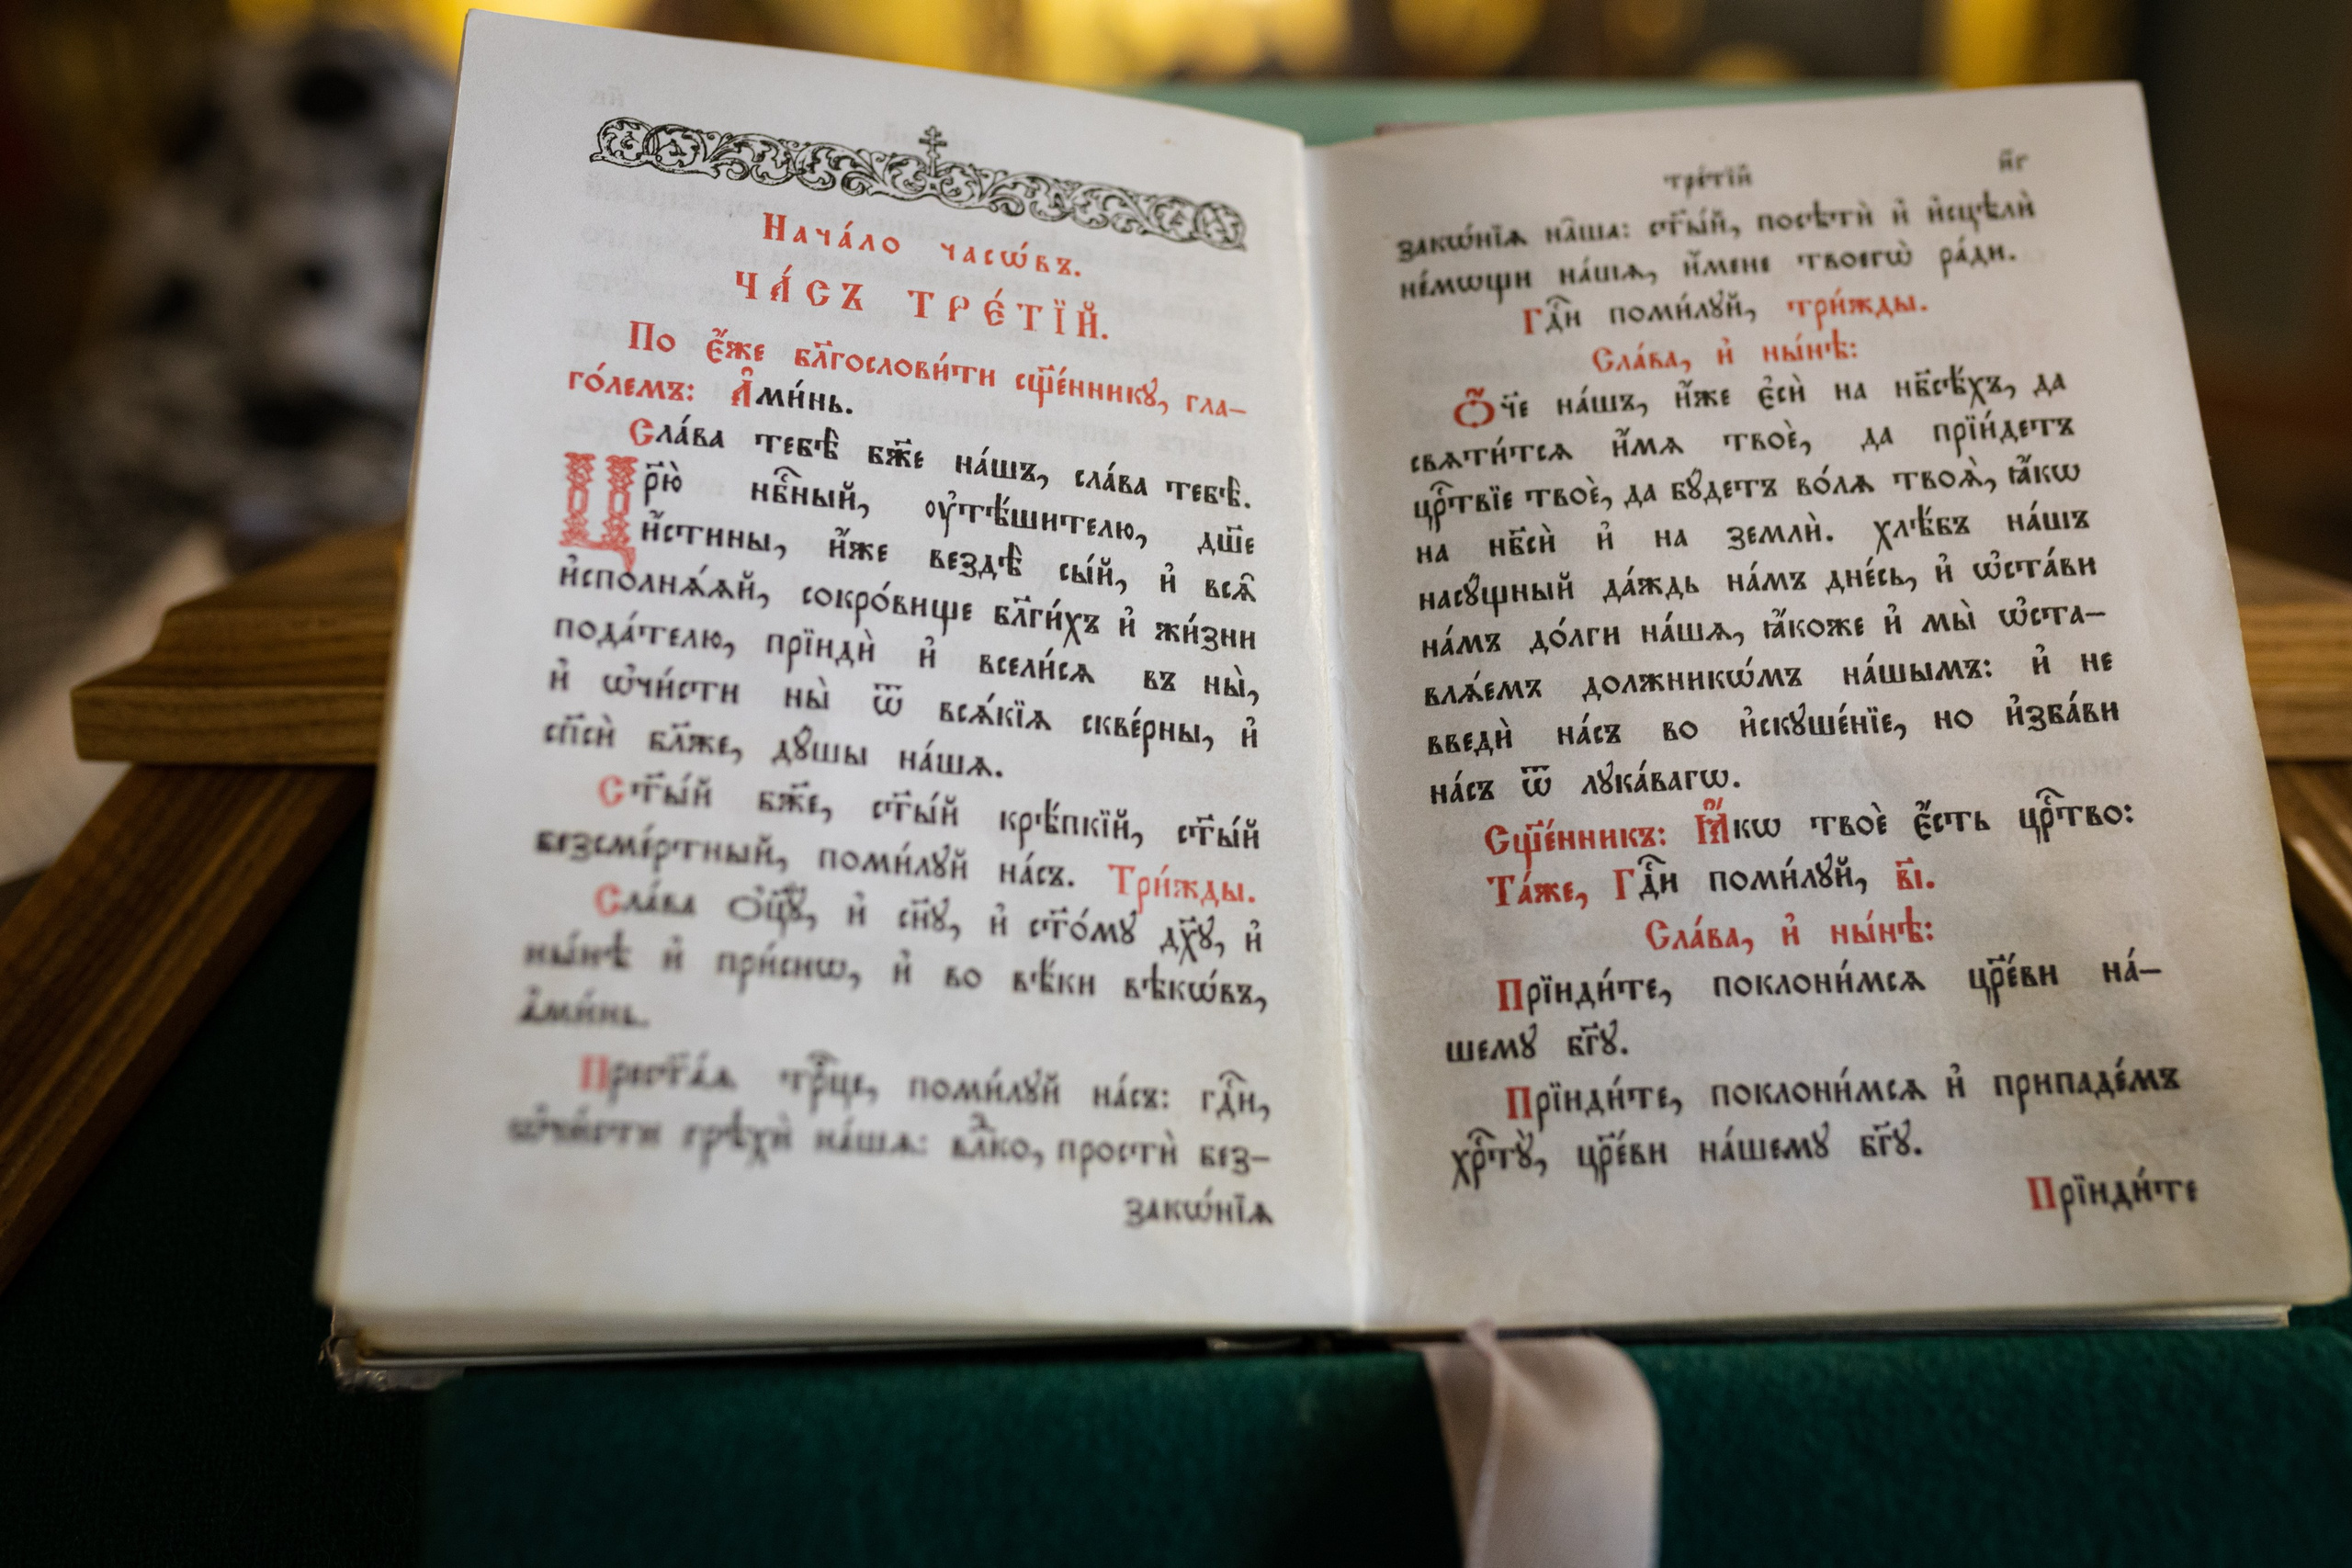 Нача́ло часѡ́въ.
ЧА́СЪ ТРЕ́ТЇЙ.
По є҆́же бл҃гослови́ти сщ҃е́ннику, гла-
го́лемъ: А҆ми́нь.
Сла́ва тебѣ̀ бж҃е на́шъ, сла́ва тебѣ̀.
Цр҃ю̀ нбⷭ҇ный, ᲂу҆тѣ́шителю, дш҃е
и҆́стины, и҆́же вездѣ̀ сы́й, и҆ всѧ̑
и҆сполнѧ́ѧй, сокро́вище бл҃ги́хъ и҆ жи́зни
пода́телю, прїидѝ и҆ всели́сѧ въ ны̀,
и҆ ѡ҆чи́сти ны̀ ѿ всѧ́кїѧ скве́рны, и҆
сп҃сѝ бл҃же, дꙋ́шы на́шѧ.
Ст҃ы́й бж҃е, ст҃ы́й крѣ́пкїй, ст҃ы́й
безсме́ртный, поми́лꙋй на́съ. Три́жды.
Сла́ва ѻ҆ц҃ꙋ̀, и҆ сн҃ꙋ, и҆ ст҃о́мꙋ дх҃ꙋ, и҆
ны́нѣ и҆ при́снѡ, и҆ во вѣ́ки вѣкѡ́въ,
а҆ми́нь.
Прест҃а́ѧ трⷪ҇це, поми́лꙋй на́съ: гдⷭ҇и,
ѡ҆чи́сти грѣхѝ на́шѧ: влⷣко, простѝ без-
закѡ́нїѧ
тре́тїй н҃г
закѡ́нїѧ на̑ша: ст҃ы́й, посѣтѝ и҆ и҆сцѣлѝ
не́мѡщи на́шѧ, и҆́мене твоегѡ̀ ра́ди.
Гдⷭ҇и поми́лꙋй, три́жды.
Сла́ва, и҆ ны́нѣ:
Ѻ҆́ч҃е на́шъ, и҆́же є҆сѝ на нб҃сѣ́хъ, да
свѧти́тсѧ и҆́мѧ твоѐ, да прїи́детъ
црⷭ҇твїе твоѐ, да бꙋ́детъ во́лѧ твоѧ̀, ꙗ҆́кѡ
на нб҃сѝ и҆ на землѝ. хлѣ́бъ на́шъ
насꙋ́щный да́ждь на́мъ дне́сь, и҆ ѡ҆ста́ви
на́мъ до́лги на́шѧ, ꙗ҆́коже и҆ мы̀ ѡ҆ста-
влѧ́емъ должникѡ́мъ на́шымъ: и҆ не
введѝ на́съ во и҆скꙋше́нїе, но и҆зба́ви
на́съ ѿ лꙋка́вагѡ.
Сщ҃е́нникъ: Ꙗ҆́кѡ твоѐ є҆́сть црⷭ҇тво:
Та́же, Гдⷭ҇и поми́лꙋй, в҃і.
Сла́ва, и҆ ны́нѣ:
Прїиди́те, поклони́мсѧ цр҃е́ви на́-
шемꙋ бг҃ꙋ.
Прїиди́те, поклони́мсѧ и҆ припаде́мъ
хрⷭ҇тꙋ̀, цр҃е́ви на́шемꙋ бг҃ꙋ.
Прїиди́те